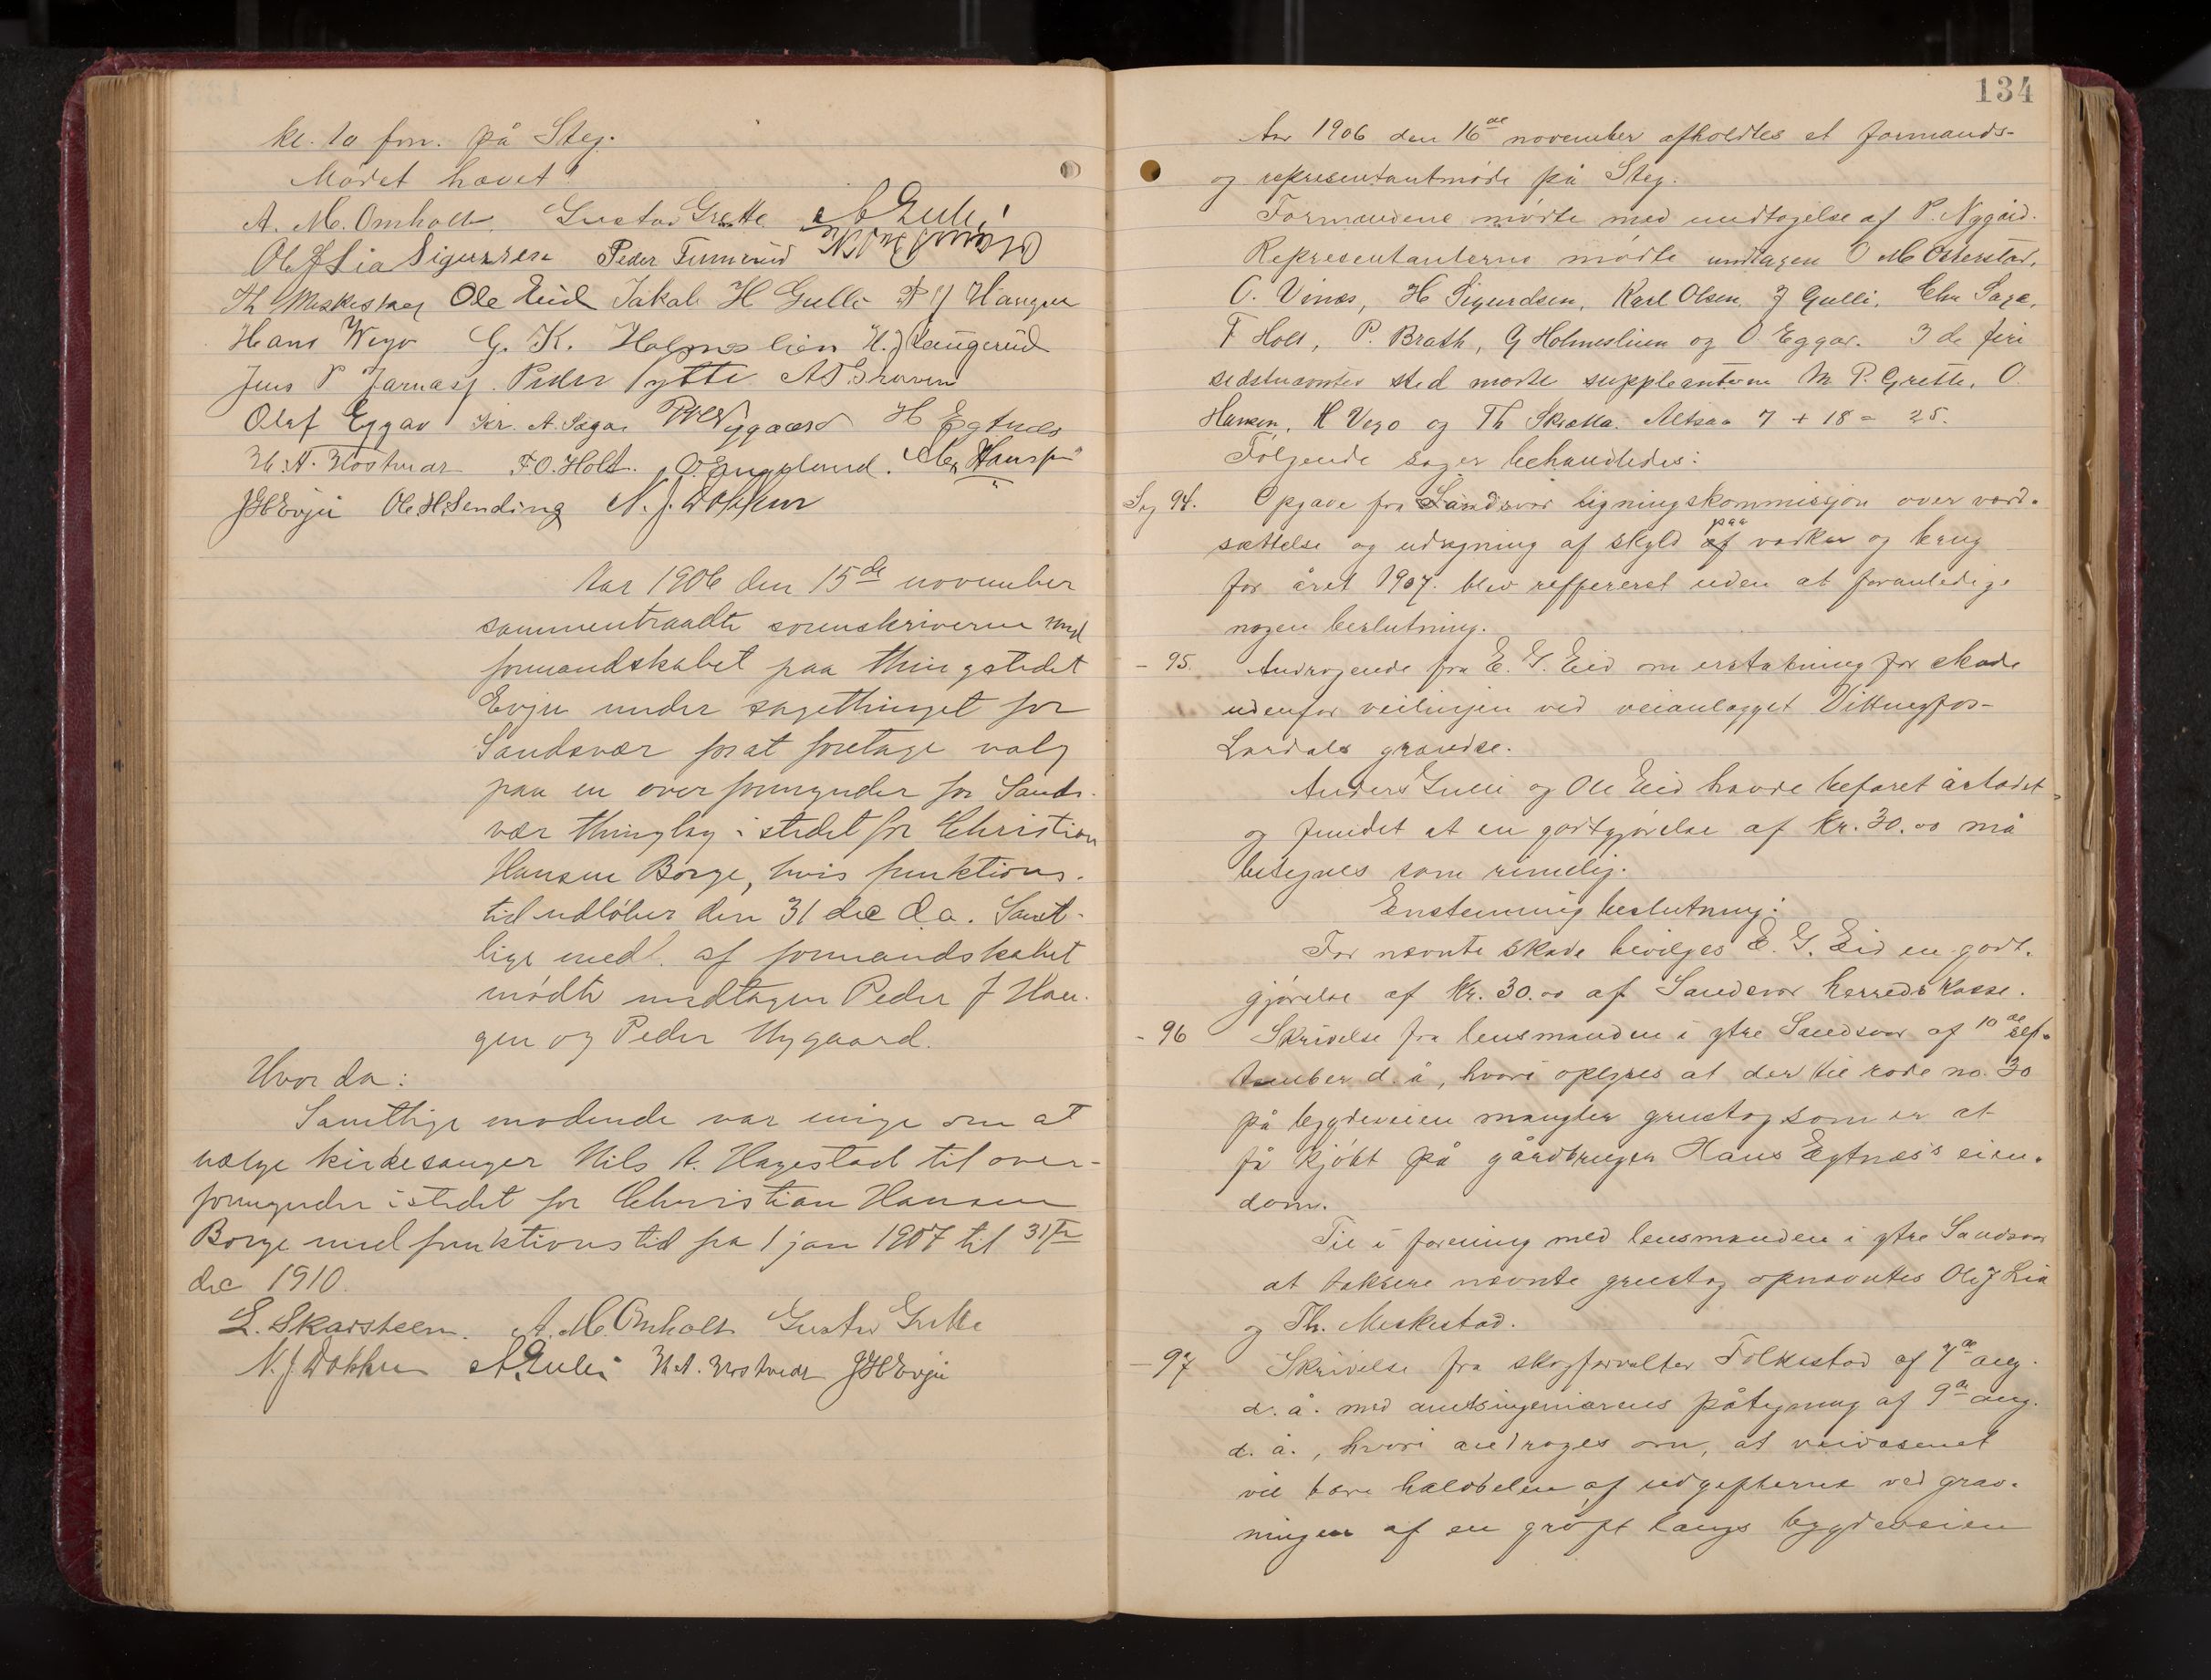 kl. 10 fm. på Steg.
Mødet hævet!
A. M. Omholt. Gustav Grette A Gulli
Ole J Lia Sigurdsen Peder Temmerud
Th Meskestad Ole Eid Jakob H Gulli P J Haugen
Hans Wego G. K. Holmeslien H. J Haugerud
Jens P Jarnæs. Peder Lytte
Olaf Eggar Kr. A. Saga PNyggaard H Egtnæs
H. A. Kostvedt F. O. Holt. O. Englund. Hansen
JHEvju Ole H. Sending N. J. Dokken
Aar 1906 den 15de november
sammentraadte sorenskriveren med
formandskabet paa thingstedet
Evju under sagethinget for
Sandsvær forat foretage valg
paa en overformynder for Sands-
vær thinglag i stedet for Christian
Hansen Borge, hvis funktions-
tid udløber den 31 dec d.a. Samt-
lige medl. af formandskabet
mødte undtagen Peder J Hau-
gen og Peder Nygaard.
Hvor da:
Samtlige mødende var enige om at
vælge kirkesanger Nils A. Hagestad til over-
formynder istedet for Christian Hansen
Borge med funktionstid fra 1 jan 1907 til 31te
dec 1910.
L. Skarsteen. A. M. Omholt Gustav Grette
N. J. Dokken A. Gulli H. A. Kostvedt JHEvju
134
Aar 1906 den 16de november afholdtes et formands-
og representantmøde på Steg.
Formændene mødte med undtagelse af P. Nygård.
Representanterne mødte undtagen O M Østerstad,
O. Vinæs, H Sigurdsen, Karl Olsen, J Gulli, Chr Saga,
F Holt, P. Bråth, G Holmeslien og O Eggar. I de fire
sidstnævntes sted mødte suppleanterne M. P. Grette, O.
Hansen, H Vego og Th Skratta. Altsaa 7 + 18 = 25.
Følgende sager behandledes:
Sag 94. Opgave fra Sandsvær ligningskommisjon over værd-
sættelse og udregning af skyld af paa værker og brug
for året 1907. blev reffereret uden at foranledige
nogen beslutning.
- 95. Andragende fra E. G. Eid om erstatning for skade
udenfor veilinjen ved veianlægget Vittingfos-
Lardals grændse.
Anders Gulli og Ole Eid havde befaret åstedet
og fundet at en godtgjørelse af kr. 30.00 må
betegnes som rimelig.
Enstemmig beslutning:
For nævnte skade bevilges E. G. Eid en godt-
gjørelse af kr. 30.00 af Sandsvær herredskasse.
- 96 Skrivelse fra lensmanden i ytre Sandsvær af 10de sep-
tember d. å, hvori oplyses at der til rode no. 30
på bygdeveien mangler grustag som er at
få kjøbt på gårdbruger Hans Egtnæs's eien-
dom.
Til i forening med lensmanden i ytre Sandsvær
at taksere nævnte grustag opnævntes Ole J Lia
og Th. Meskestad.
- 97 Skrivelse fra skogforvalter Folkestad af 7de aug.
d. å. med amtsingeniørens påtegning af 9de aug.
d. å., hvori andrages om, at veivæsenet
vil bære halvdelen af udgifterne ved grav-
ningen af en grøft langs bygdeveien